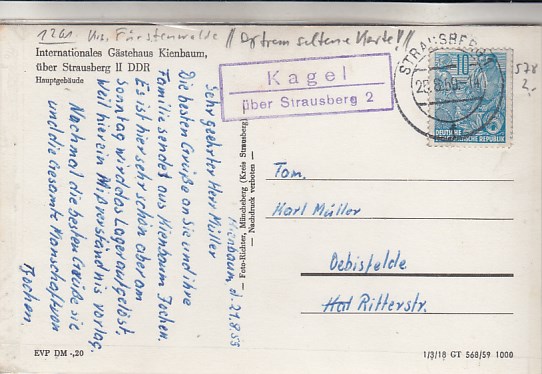 1201 Krs. Fürstenwalde // Extrem seltene Karte!!
Internationales Gästehaus Kienbaum,
über Strausberg II DDR
Hauptgebäude
Kagel
über Strausberg 2
STRAUSBERG
10
DEUTSCHE
DEMOKRATISCHE REPUBLIK
578
2.-
Kienbaum, d. 21.8.59
Sehr geehrter Herr Müller
Die besten Grüße an Sie und ihre
Familie sendet aus Kienbaum Jochen.
Es ist hier sehr schön aber am
Sonntag wird das Lager aufgelöst,
weil hier ein Mißverständnis vorlag.
Nochmal die besten Grüße sie
und die Gesamte Manschaft von
Jochen.
Foto-Richter, Müncheberg (Kreis Strausberg)
— Nachdruck verboten —
Fam.
Karl Müller
Oebisfelde
Ritterstr.
EVP DM -,20
1/3/18 GT 568/59 1000